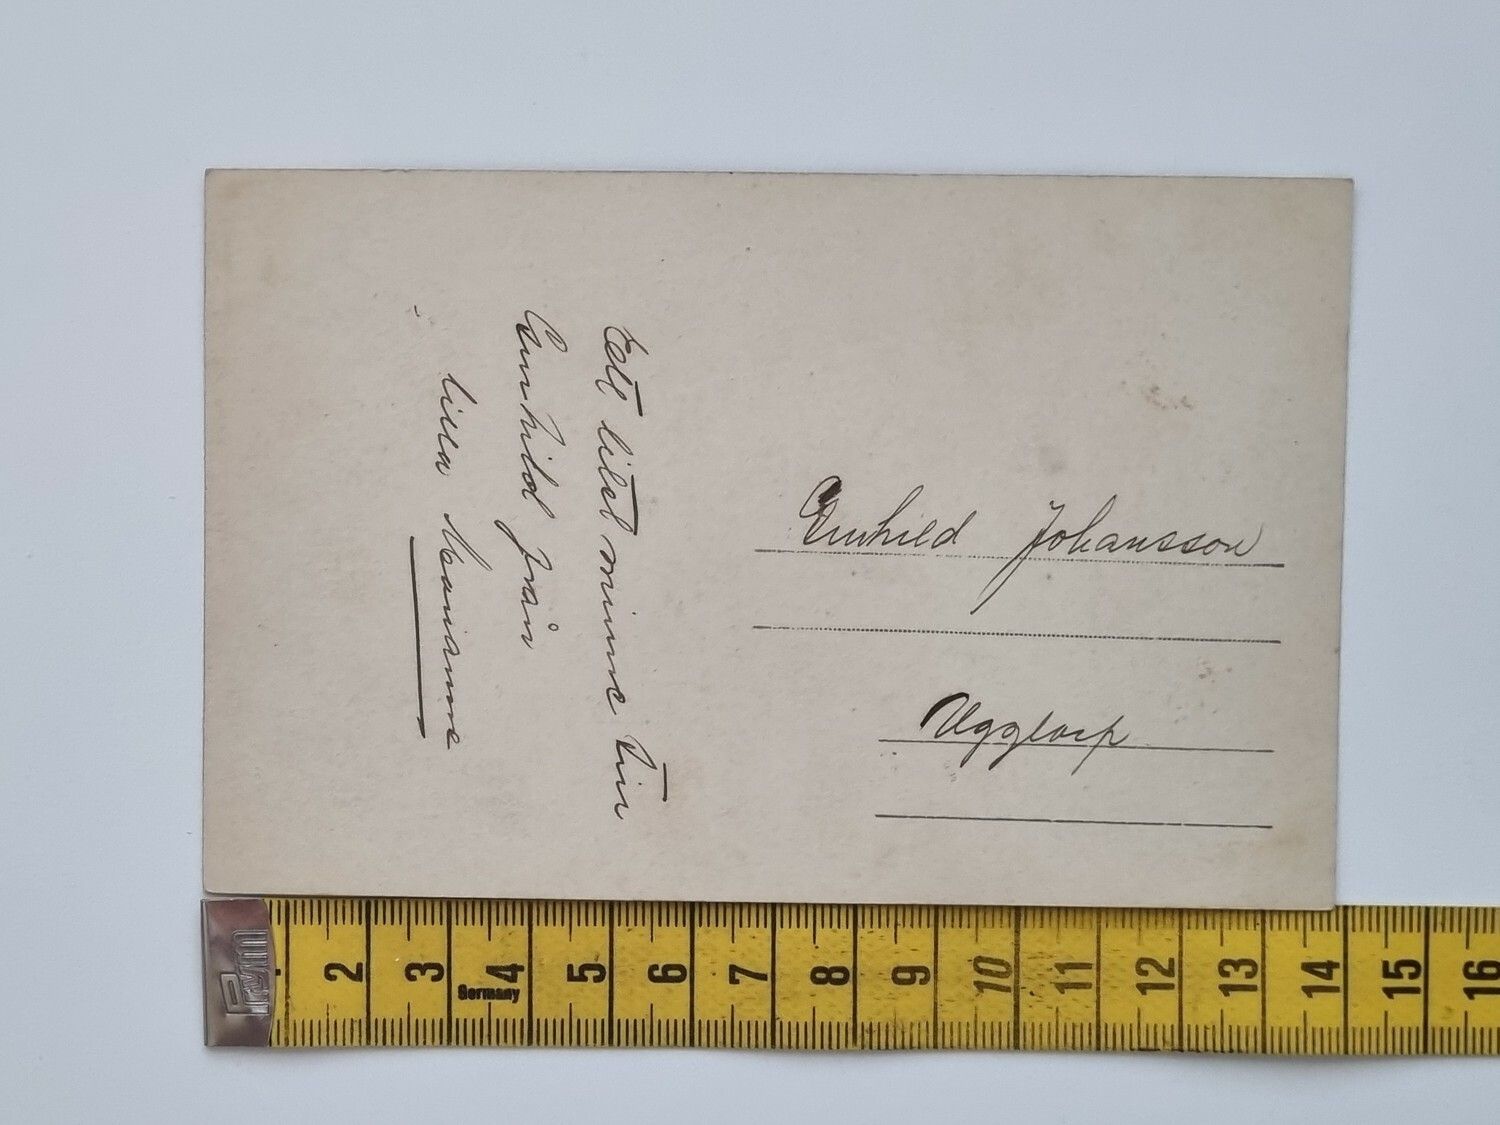 Ett litet minne till
Gunhild från
lilla Marianne
Gunhild Johansson
Uggtorp
Prym
Germany
2 3 4 5 6 7 8 9 10 11 12 13 14 15 16